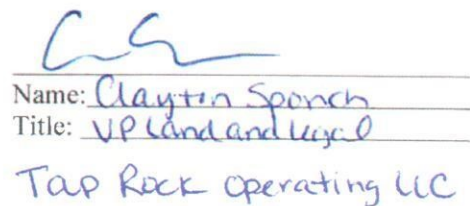 Name: Clayton Sponch
Title: VP Land and Legal
Tap Rock Operating LLC